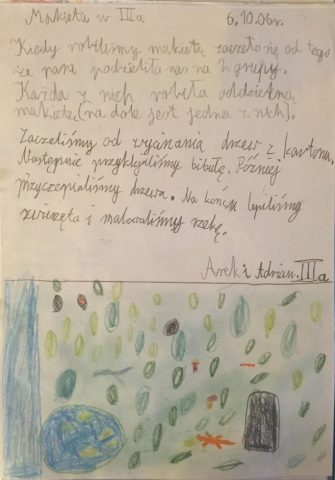 Makieta w IIIa 6.10.06r.
Kiedy robiliśmy makietę, zaczęło się od tego
że pani podzieliła nas na 2 grupy.
Każda z nich robiła oddzielną
makietę (na dole jest jedna z nich).
Zaczeliśmy od wycinania drzew z kartonu.
Następnie przyklejaliśmy bibułę. Później
przyczepialiśmy drzewa. Na końcu lepiliśmy
zwierzęta i malowaliśmy rzekę.
Arek i Adrian. IIIa